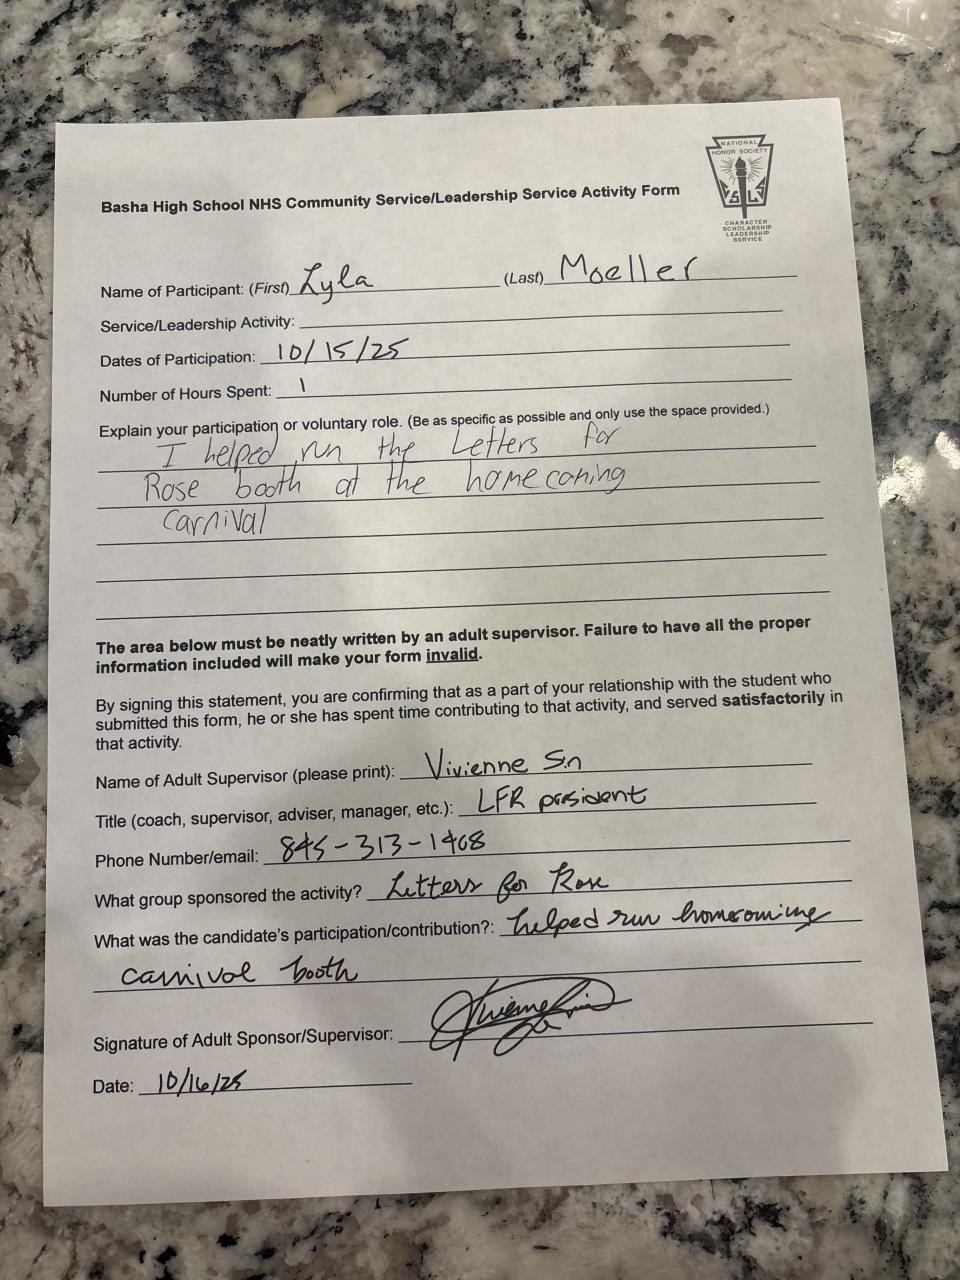 NATIONAL
HONOR SOCIETY
CHARACTER
SCHOLARSHIP
LEADERSHIP
SERVICE
Basha High School NHS Community Service/Leadership Service Activity Form
Name of Participant: (First) Lyla (Last) Moeller
Service/Leadership Activity:
Dates of Participation: 10/15/25
Number of Hours Spent: 1
Explain your participation or voluntary role. (Be as specific as possible and only use the space provided.)
I helped run the Letters for
Rose booth at the homecoming
carnival
The area below must be neatly written by an adult supervisor. Failure to have all the proper
information included will make your form invalid.
By signing this statement, you are confirming that as a part of your relationship with the student who
submitted this form, he or she has spent time contributing to that activity, and served satisfactorily in
that activity.
Name of Adult Supervisor (please print): Vivienne
Title (coach, supervisor, adviser, manager, etc.): LFR president
Phone Number/email: 845-313-1468
What group sponsored the activity? Letters for Rose
What was the candidate's participation/contribution?: helped run homecoming
carnival booth
Signature of Adult Sponsor/Supervisor:
Date: 10/16/25